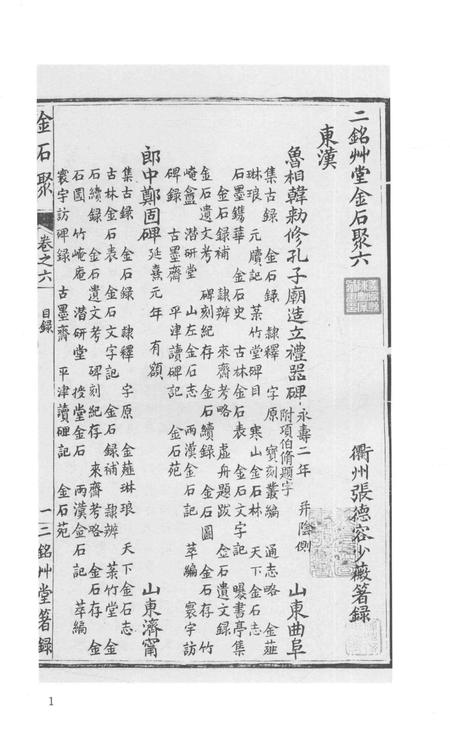 二銘艸堂金石聚六
衢州張德容少薇箸錄
東漢
魯相韓勑修孔子廟造立禮器碑 永壽二年 并陰側 附項伯脩題字 山東曲阜
集古錄 金石錄 隸釋 字原 寶刻叢編 通志略 金薤
琳琅 元牘記 菉竹堂碑目 寒山金石林 天下金石志
石墨鐫華 金石史 古林金石表 金石文字記 曝書亭集
金石錄補 隸辨 來齋考略 虛舟題跋 金石遺文錄
金石遺文考 碑刻紀存 金石續錄 金石圖 竹
崦盦 潛研堂 山左金石志 兩漢金石記 萃編 寰宇訪
碑錄 古墨齋 平津讀碑記 金石苑
郎中鄭固碑 延熹元年 有額 山東濟甯
集古錄 金石錄 隸釋 字原 金薤琳琅 天下金石志
古林金石表 金石文字記 金石錄補 隸辨 菉竹堂 金
石續錄 金石遺文考 碑刻紀存 來齋考略 金石存 金
石圖 竹崦庵 潛研堂 授堂金石 兩漢金石記 萃編
寰宇訪碑錄 古墨齋 平津讀碑記 金石苑
金石聚 卷之六 目錄 一 二銘艸堂箸錄
1